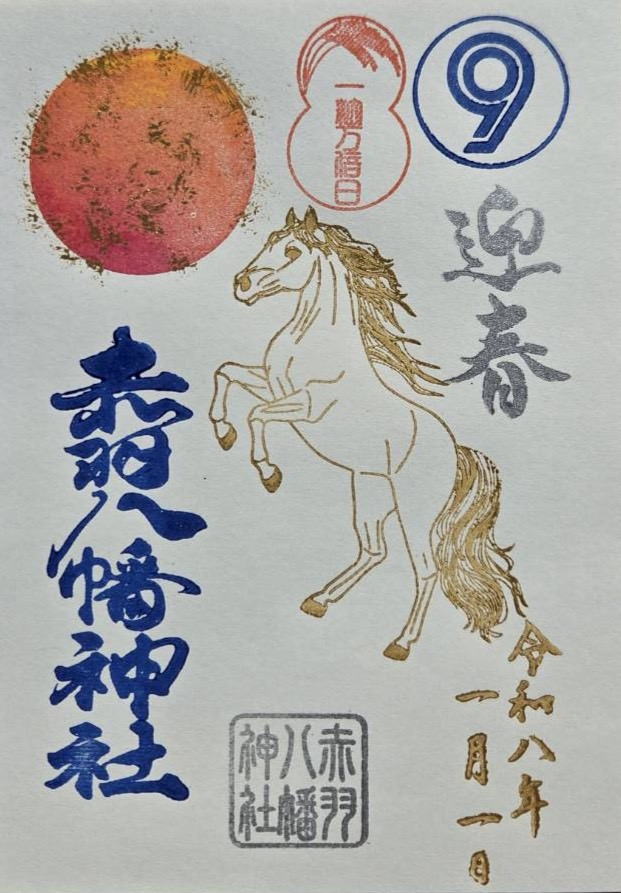 ⑨
一粒万倍日
迎春
赤羽八幡神社
令和八年
一月一日
赤羽
八幡
神社